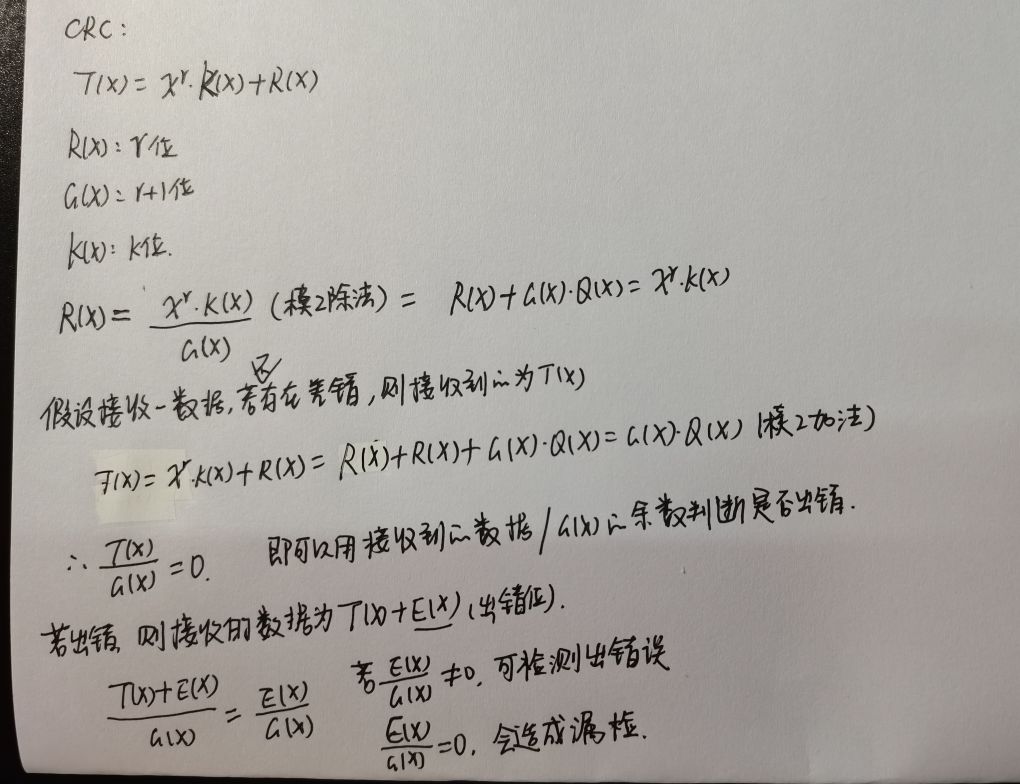 CRC:
T(X) = X^r·K(X)+R(X)
R(X): r位
G(X): r+1位
K(X): K位.
R(X) = X^r·K(X) / G(X) (模2除法) = R(X)+G(X)·Q(X) = X^r·K(X)
不
假设接收一数据,若存在差错,则接收到的为T(X)
T(X) = X^r·K(X)+R(X) = R(X)+R(X)+G(X)·Q(X) = G(X)·Q(X) (模2加法)
∴ T(X) / G(X) = 0. 即可以用接收到的数据 / G(X)的余数判断是否出错.
若出错,则接收的数据为T(X)+E(X) (出错位).
T(X)+E(X) / G(X) = E(X) / G(X) 若 E(X) / G(X) ≠0, 可检测出错误
E(X) / G(X) =0, 会造成漏检.